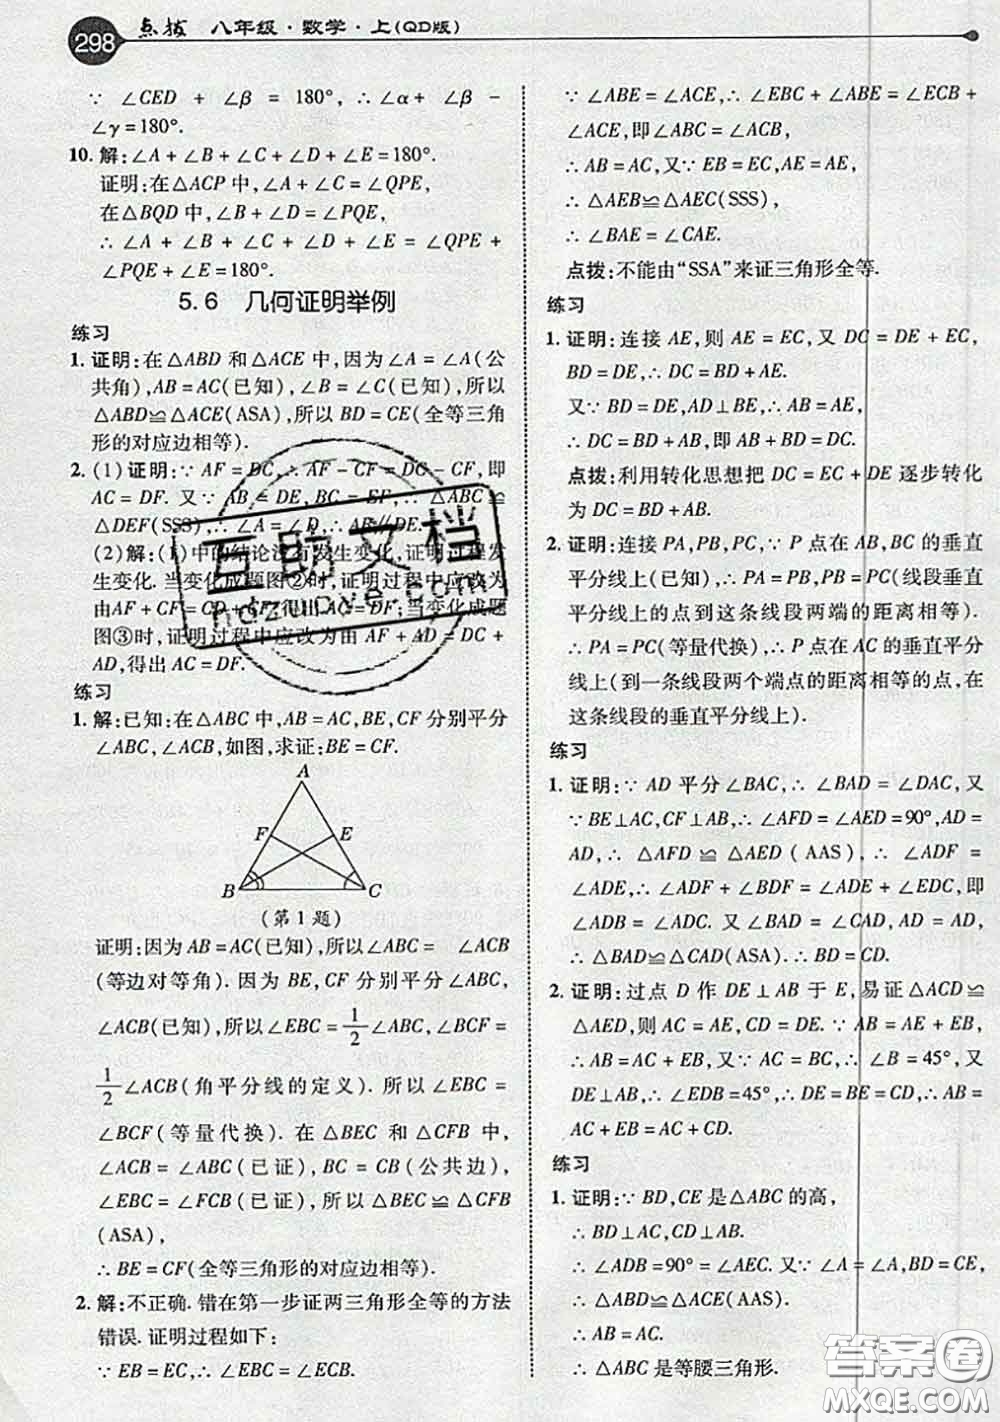 298 点拨 八年级·数学·上(QD版)
∵ ∠CED + ∠β = 180°, ∴ ∠α + ∠β -
∠γ = 180°.
10. 解:∠A + ∠B + ∠C + ∠D + ∠E = 180°.
证明:在△ACP 中,∠A + ∠C = ∠QPE,
在△BQD 中,∠B + ∠D = ∠PQE,
∴ ∠A + ∠B + ∠C + ∠D + ∠E = ∠QPE +
∠PQE + ∠E = 180°.
5.6 几何证明举例
练习
1. 证明:在△ABD 和△ACE 中,因为∠A = ∠A(公
共角),AB = AC(已知),∠B = ∠C(已知),所以
△ABD≌△ACE(ASA),所以 BD = CE(全等三角
形的对应边相等).
2. (1)证明:∵ AF = DC,∴ AF - CF = DC - CF,即
AC = DF. 又∵ AB = DE,BC = EF,∴ △ABC ≌
△DEF(SSS),∴ ∠A = ∠D,∴ AB∥DE.
(2)解:(1)中的结论没有发生变化,证明过程发
生变化.当变化成题图②时,证明过程中应改为
AF + CF = CD + CF,得出 AC = DF;当变化成题
图③时,证明过程中应改为由 AF + AD = DC +
AD,得出 AC = DF.
练习
1. 解:已知:在△ABC 中,AB = AC,BE,CF 分别平分
∠ABC,∠ACB,如图,求证:BE = CF.
A
F E
B C
(第 1 题)
证明:因为 AB = AC(已知),所以∠ABC = ∠ACB
(等边对等角). 因为 BE,CF 分别平分∠ABC,
∠ACB(已知),所以∠EBC = 1/2 ∠ABC,∠BCF =
1/2 ∠ACB(角平分线的定义). 所以∠EBC =
∠BCF(等量代换). 在△BEC 和△CFB 中,
∠ACB = ∠ABC(已证),BC = BC(公共边),
∠EBC = ∠FCB(已证),所以△BEC≌△CFB
(ASA),
∴ BE = CF(全等三角形的对应边相等).
2. 解:不正确. 错在第一步证两三角形全等的方法
错误. 证明过程如下:
∵ EB = EC,∴ ∠EBC = ∠ECB.
∵ ∠ABE = ∠ACE,∴ ∠EBC + ∠ABE = ∠ECB +
∠ACE,即∠ABC = ∠ACB,
∴ AB = AC,又∵ EB = EC,AE = AE,
∴ △AEB≌△AEC(SSS),
∴ ∠BAE = ∠CAE.
点拨:不能由“SSA”来证三角形全等.
练习
1. 证明:连接 AE,则 AE = EC,又 DC = DE + EC,
BD = DE,∴ DC = BD + AE.
又∵ BD = DE,AD⊥BE,∴ AB = AE,
∴ DC = BD + AB,即 AB + BD = DC.
点拨:利用转化思想把 DC = EC + DE 逐步转化
为 DC = BD + AB.
2. 证明:连接 PA,PB,PC,∵ P 点在 AB,BC 的垂直
平分线上(已知),∴ PA = PB,PB = PC(线段垂直
平分线上的点到这条线段两端的距离相等).
∴ PA = PC(等量代换).∴ P 点在 AC 的垂直平分
线上(到一条线段两个端点的距离相等的点,在
这条线段的垂直平分线上).
练习
1. 证明:∵ AD 平分∠BAC,∴ ∠BAD = ∠DAC,又
∵ BE⊥AC,CF⊥AB,∴ ∠AFD = ∠AED = 90°,AD =
AD,∴ △AFD ≌ △AED(AAS),∴ ∠ADF =
∠ADE,∴ ∠ADF + ∠BDF = ∠ADE + ∠EDC,即
∠ADB = ∠ADC. 又∠BAD = ∠CAD,AD = AD,
∴ △BAD≌△CAD(ASA).∴ BD = CD.
2. 证明:过点 D 作 DE⊥AB 于 E,易证△ACD≌
△AED,则 AC = AE,CD = DE.∵ AB = AE + EB,
∴ AB = AC + EB,又∵ AC = BC,∴ ∠B = 45°,又
DE⊥AB,∴ ∠EDB = 45°,∴ DE = BE = CD,∴ AB =
AC + EB = AC + CD.
练习
1. 证明:∵ BD,CE 是△ABC 的高,
∴ BD⊥AC,CD⊥AB.
∴ ∠ADB = 90° = ∠AEC,又∵ ∠A = ∠A,BD = CE,
∴ △ABD≌△ACE(AAS).
∴ AB = AC.
∴ △ABC 是等腰三角形.
互助文档
hdzuoye.com
答案圈
MXQE.COM